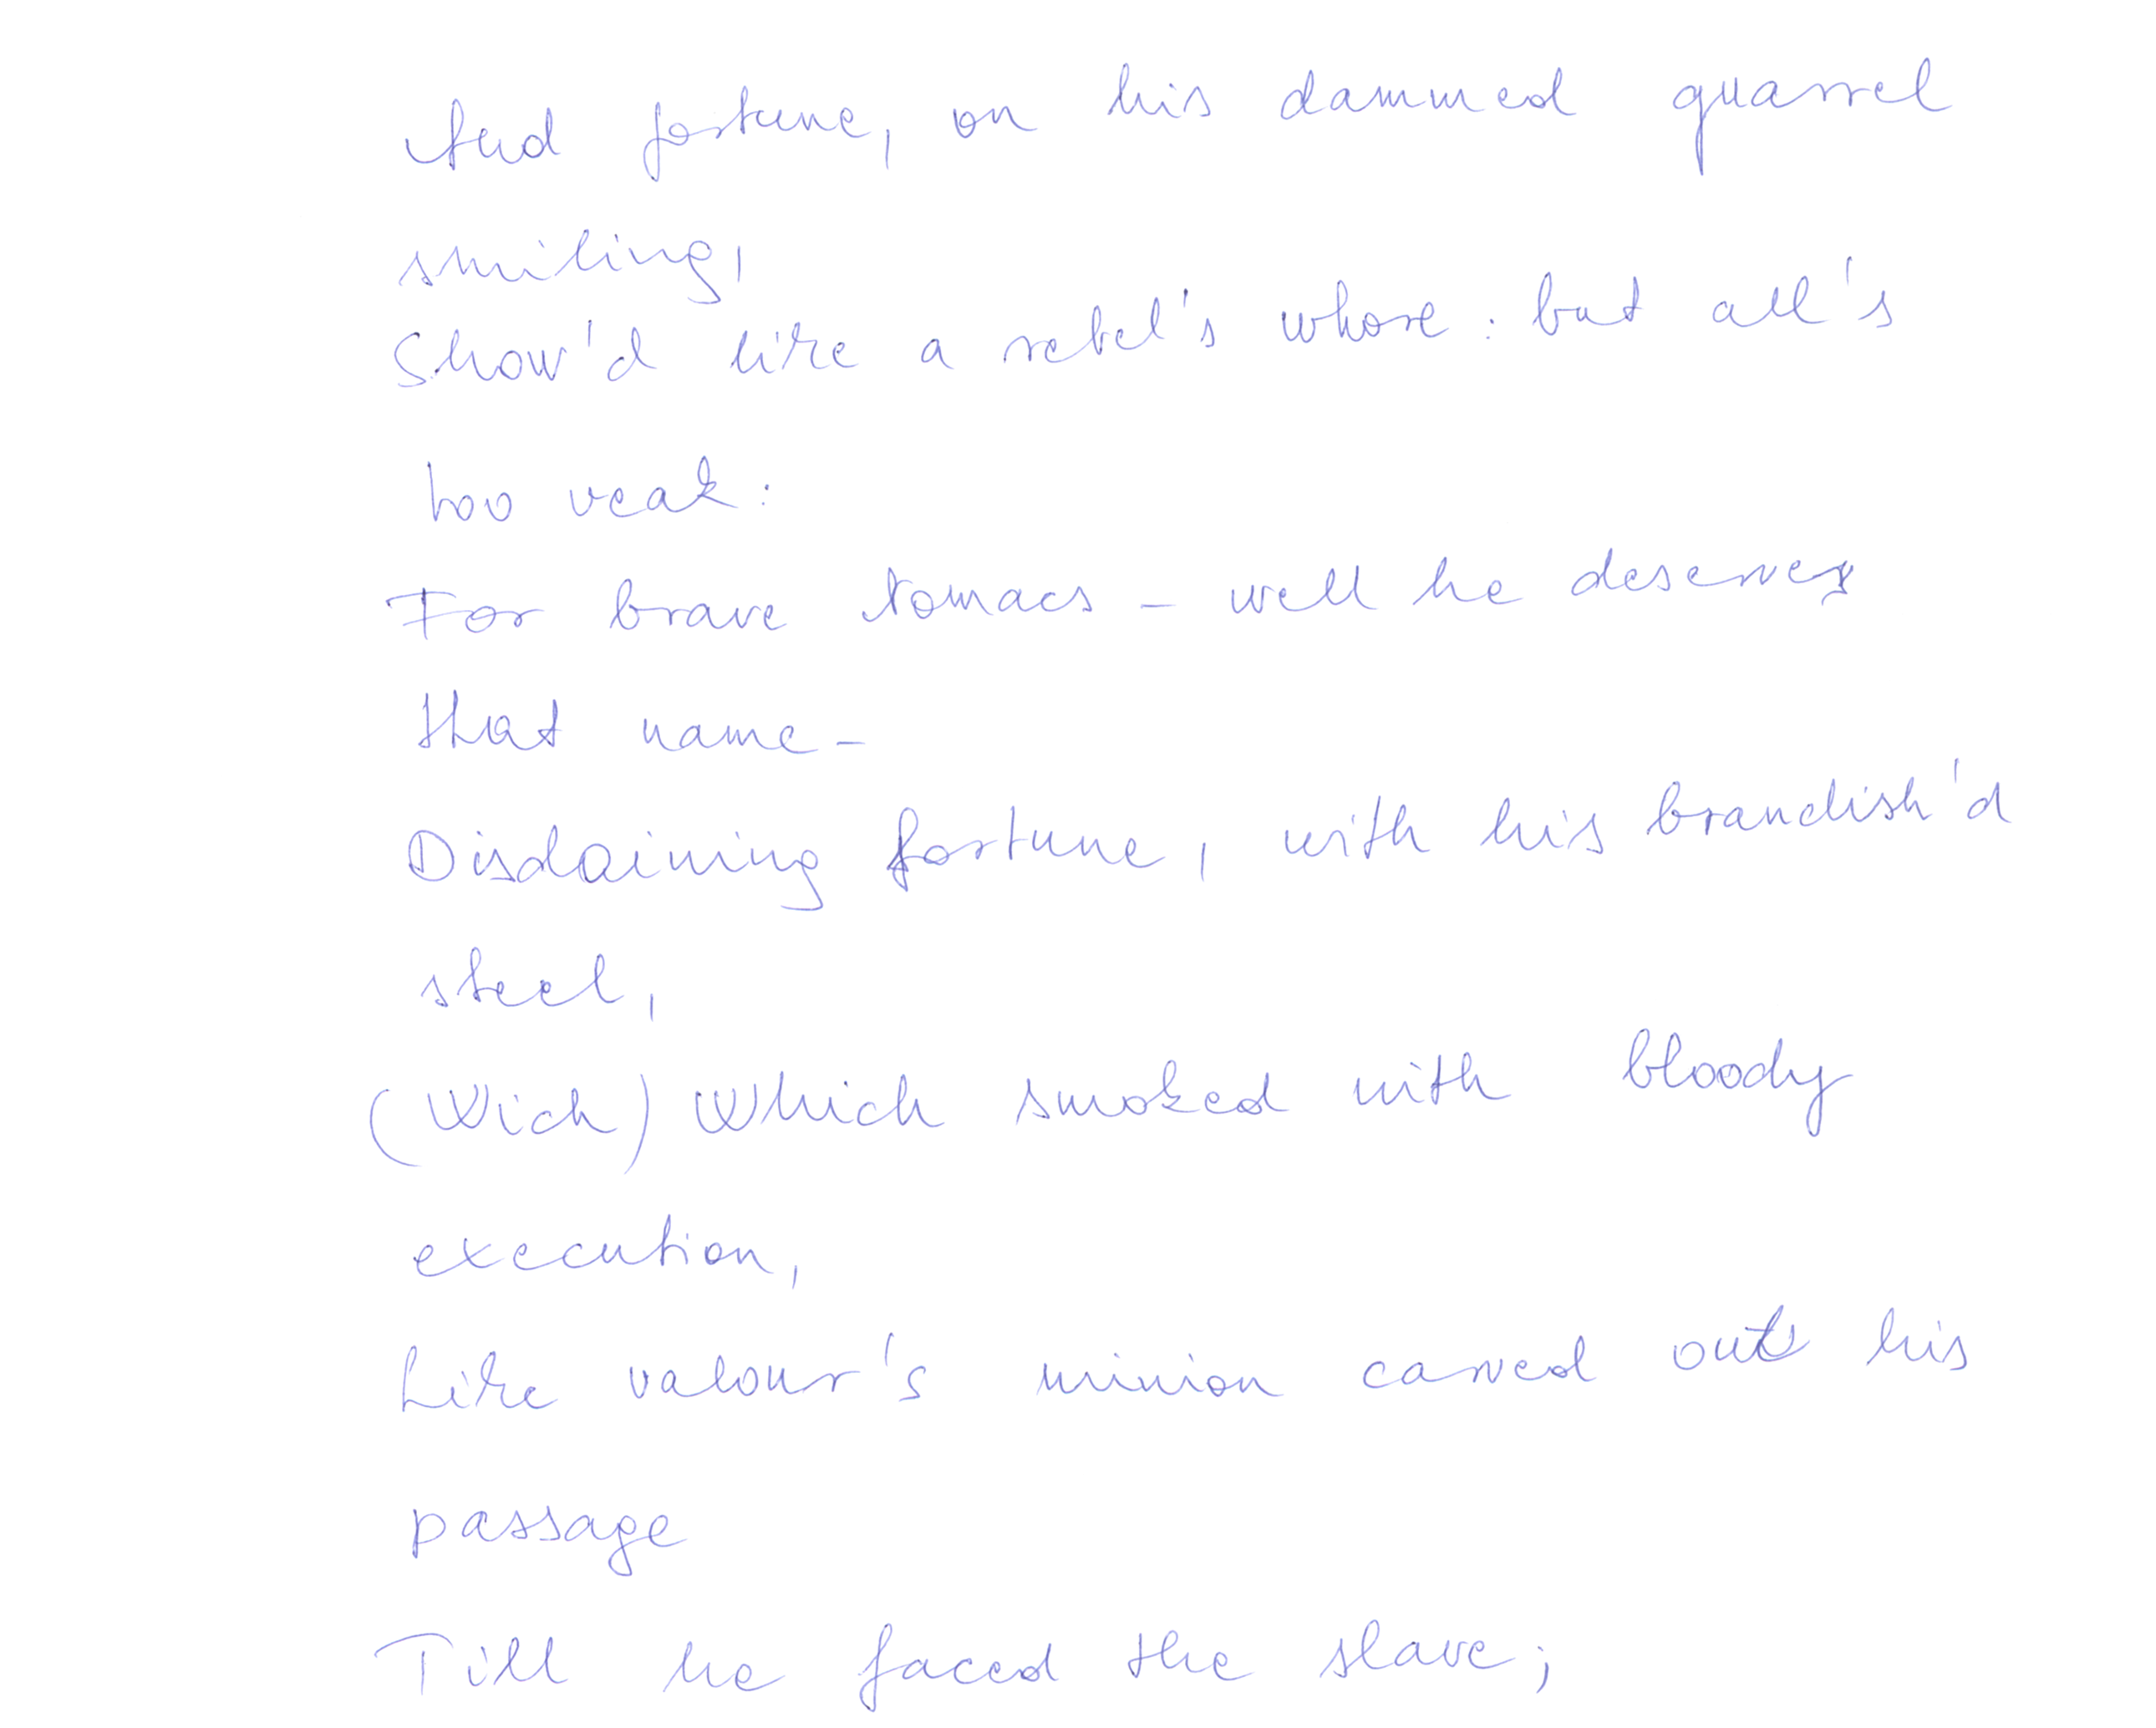 And fortune, on his dammed quarrel
smiling,
Show'd like a rebel's whore: but all's
too weak:
For brave tomacs - well he deserves
that name-
Disdaining fortune, with his brandish'd
steel,
(Wich) Which smoked with bloody
execution,
Like valour's minion carved out his
passage
Till he faced the slave;